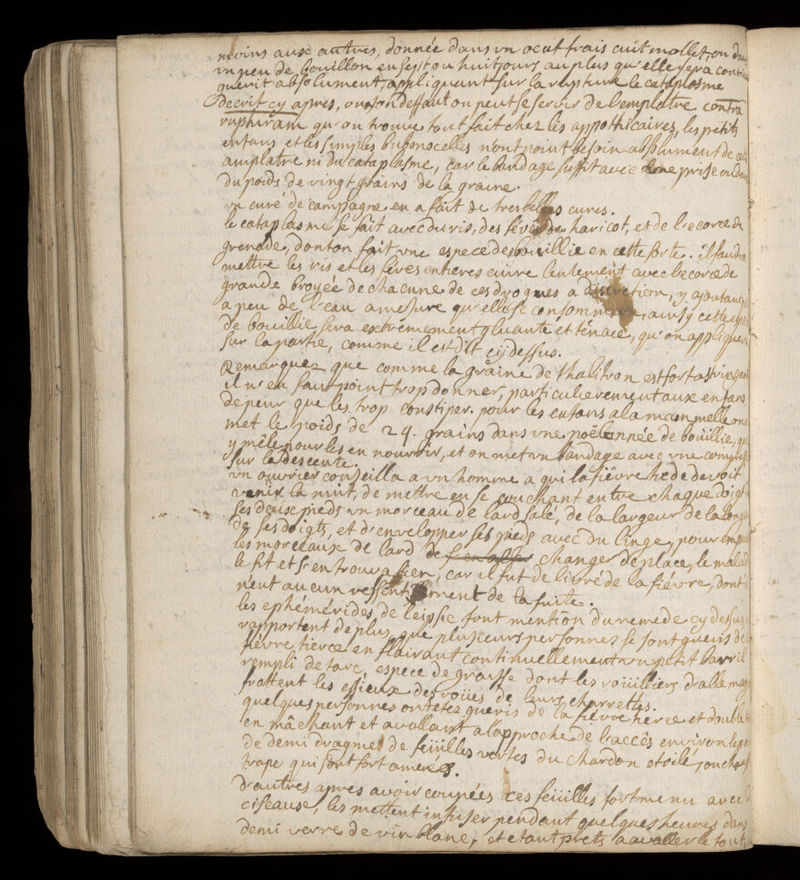 moins ausé autres, donnée dans un oeuf frais cuit mollet, ou dans
un peu de bouillon en sept ou huit jours au plus qu'elle sera
guerit absolument, appliquent sur la rupture le cataplasme
decrit cy apres, ou a son deffaut on peut se servir de l'emplatre contra
rupturam qu'on trouve tout fait chez les appothicaires, les petits
enfans et les simples bubonocelles n'ont point besoin absolument de
amplatre ni du cataplasme, car le bandage suffit avec prise
du poids de vingt grains de la graine.
un curé de campagne en a fait de tres belles cures.
le cataplasme se fait avec du ris, des féves de haricot, et de l'ecorce de
grenade, dont on fait une espece de bouillie en cette sorte. il faudra
mettre les ris et les féves entieres cuire lentement avec l'ecorce de
grande broyée de chacune de ces drogues a discretion, y ajoutant
a peu de l'eau a mesure qu'elle se consommera, ainsy cette
de bouillie sera extrémement gluante et ténace, qu'on appliquera
sur la partie, comme il est dit cy dessus.
Remarquez que comme la graine de thalitron est fort astringente
il n'en faut point trop donner, particulierement aux enfans
de peur que les trop constiper. pour les enfans a la mammelle on
met le poids de 24. grains dans une poëlonnée de bouillie,
y mêle pour les en nourrir, et on met un bandage avec une compresse
sur la descente.
un ouvrier conseilla a un homme a qui la fiévre devoit
venir la nuit, de mettre en se couchant entre chaque doigt
ses deux pieds un morceau de lard salé, de la largeur de la
de ses doigts, et d'envelopper ses pieds avec du linge, pour
les morceaux de lard de changer de place, le malade
le fit et s'en trouva bien, car il fut delivré de la fiévre, dont
n'eut aucun ressentiment de la suite.
les ephémérides de leipsic font mention du remede cy dessus
rapportent de plus, que plusieurs personnes se sont gueris de
fiévre tierce en flairant continuellement un petit barril
rempli de tarc, espece de graisse dont les roüilliers d'allemagne
frottent les essieux des roües de leurs charrettes.
quelques personnes ont étez gueris de la fiévre tierce et double
en mâchant et avallant a l'approche de l'accès environ le
de demi dragme de feüilles vertes du chardon etoilé,
trape qui sont fort ameres.
D'autres apres avoir coupées ces feüilles fort menu avec
ciseaux, les mettent infuser pendant quelques heures dans
demi verre de vin blanc, et etant prets a avaller le tout